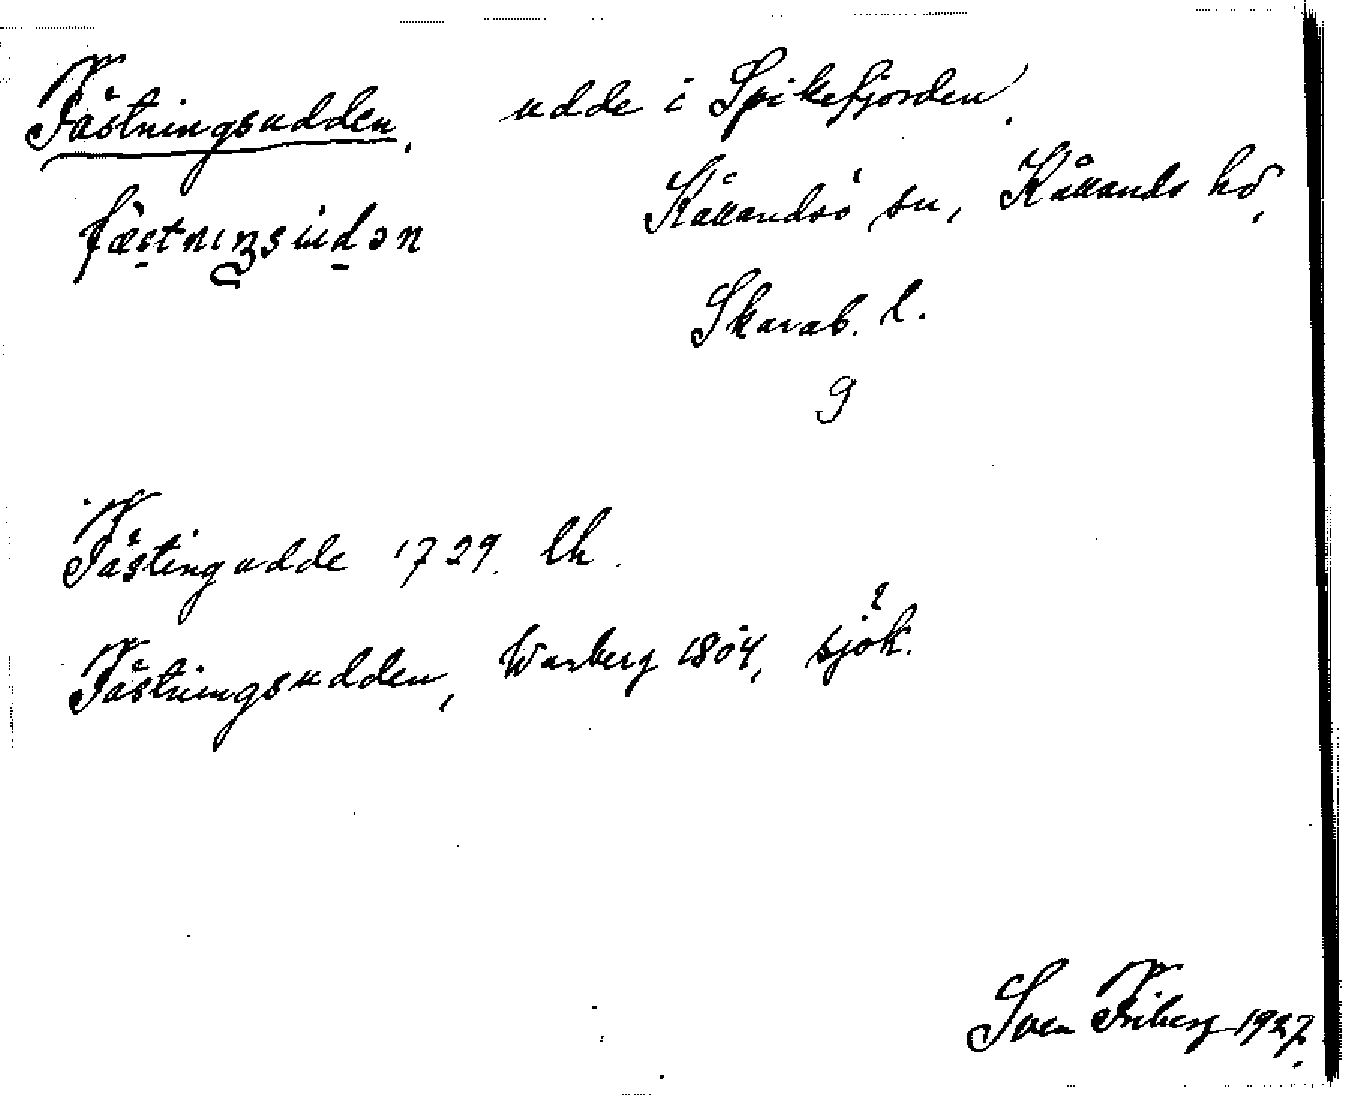 Fästningsudden. udde i Spikefjorden.
fæstnıŋsudən Kållandsö sn, Kållands hd,
Skarab. l.
9
Fästingudde 1729. lh.
Fästningsudden, Warberg 1804, sjök.
Sven Friberg 1927.